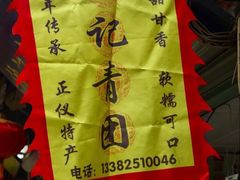 甜甘香
软糯可口
记青团
年传承
正仪特产
电话:13382510046